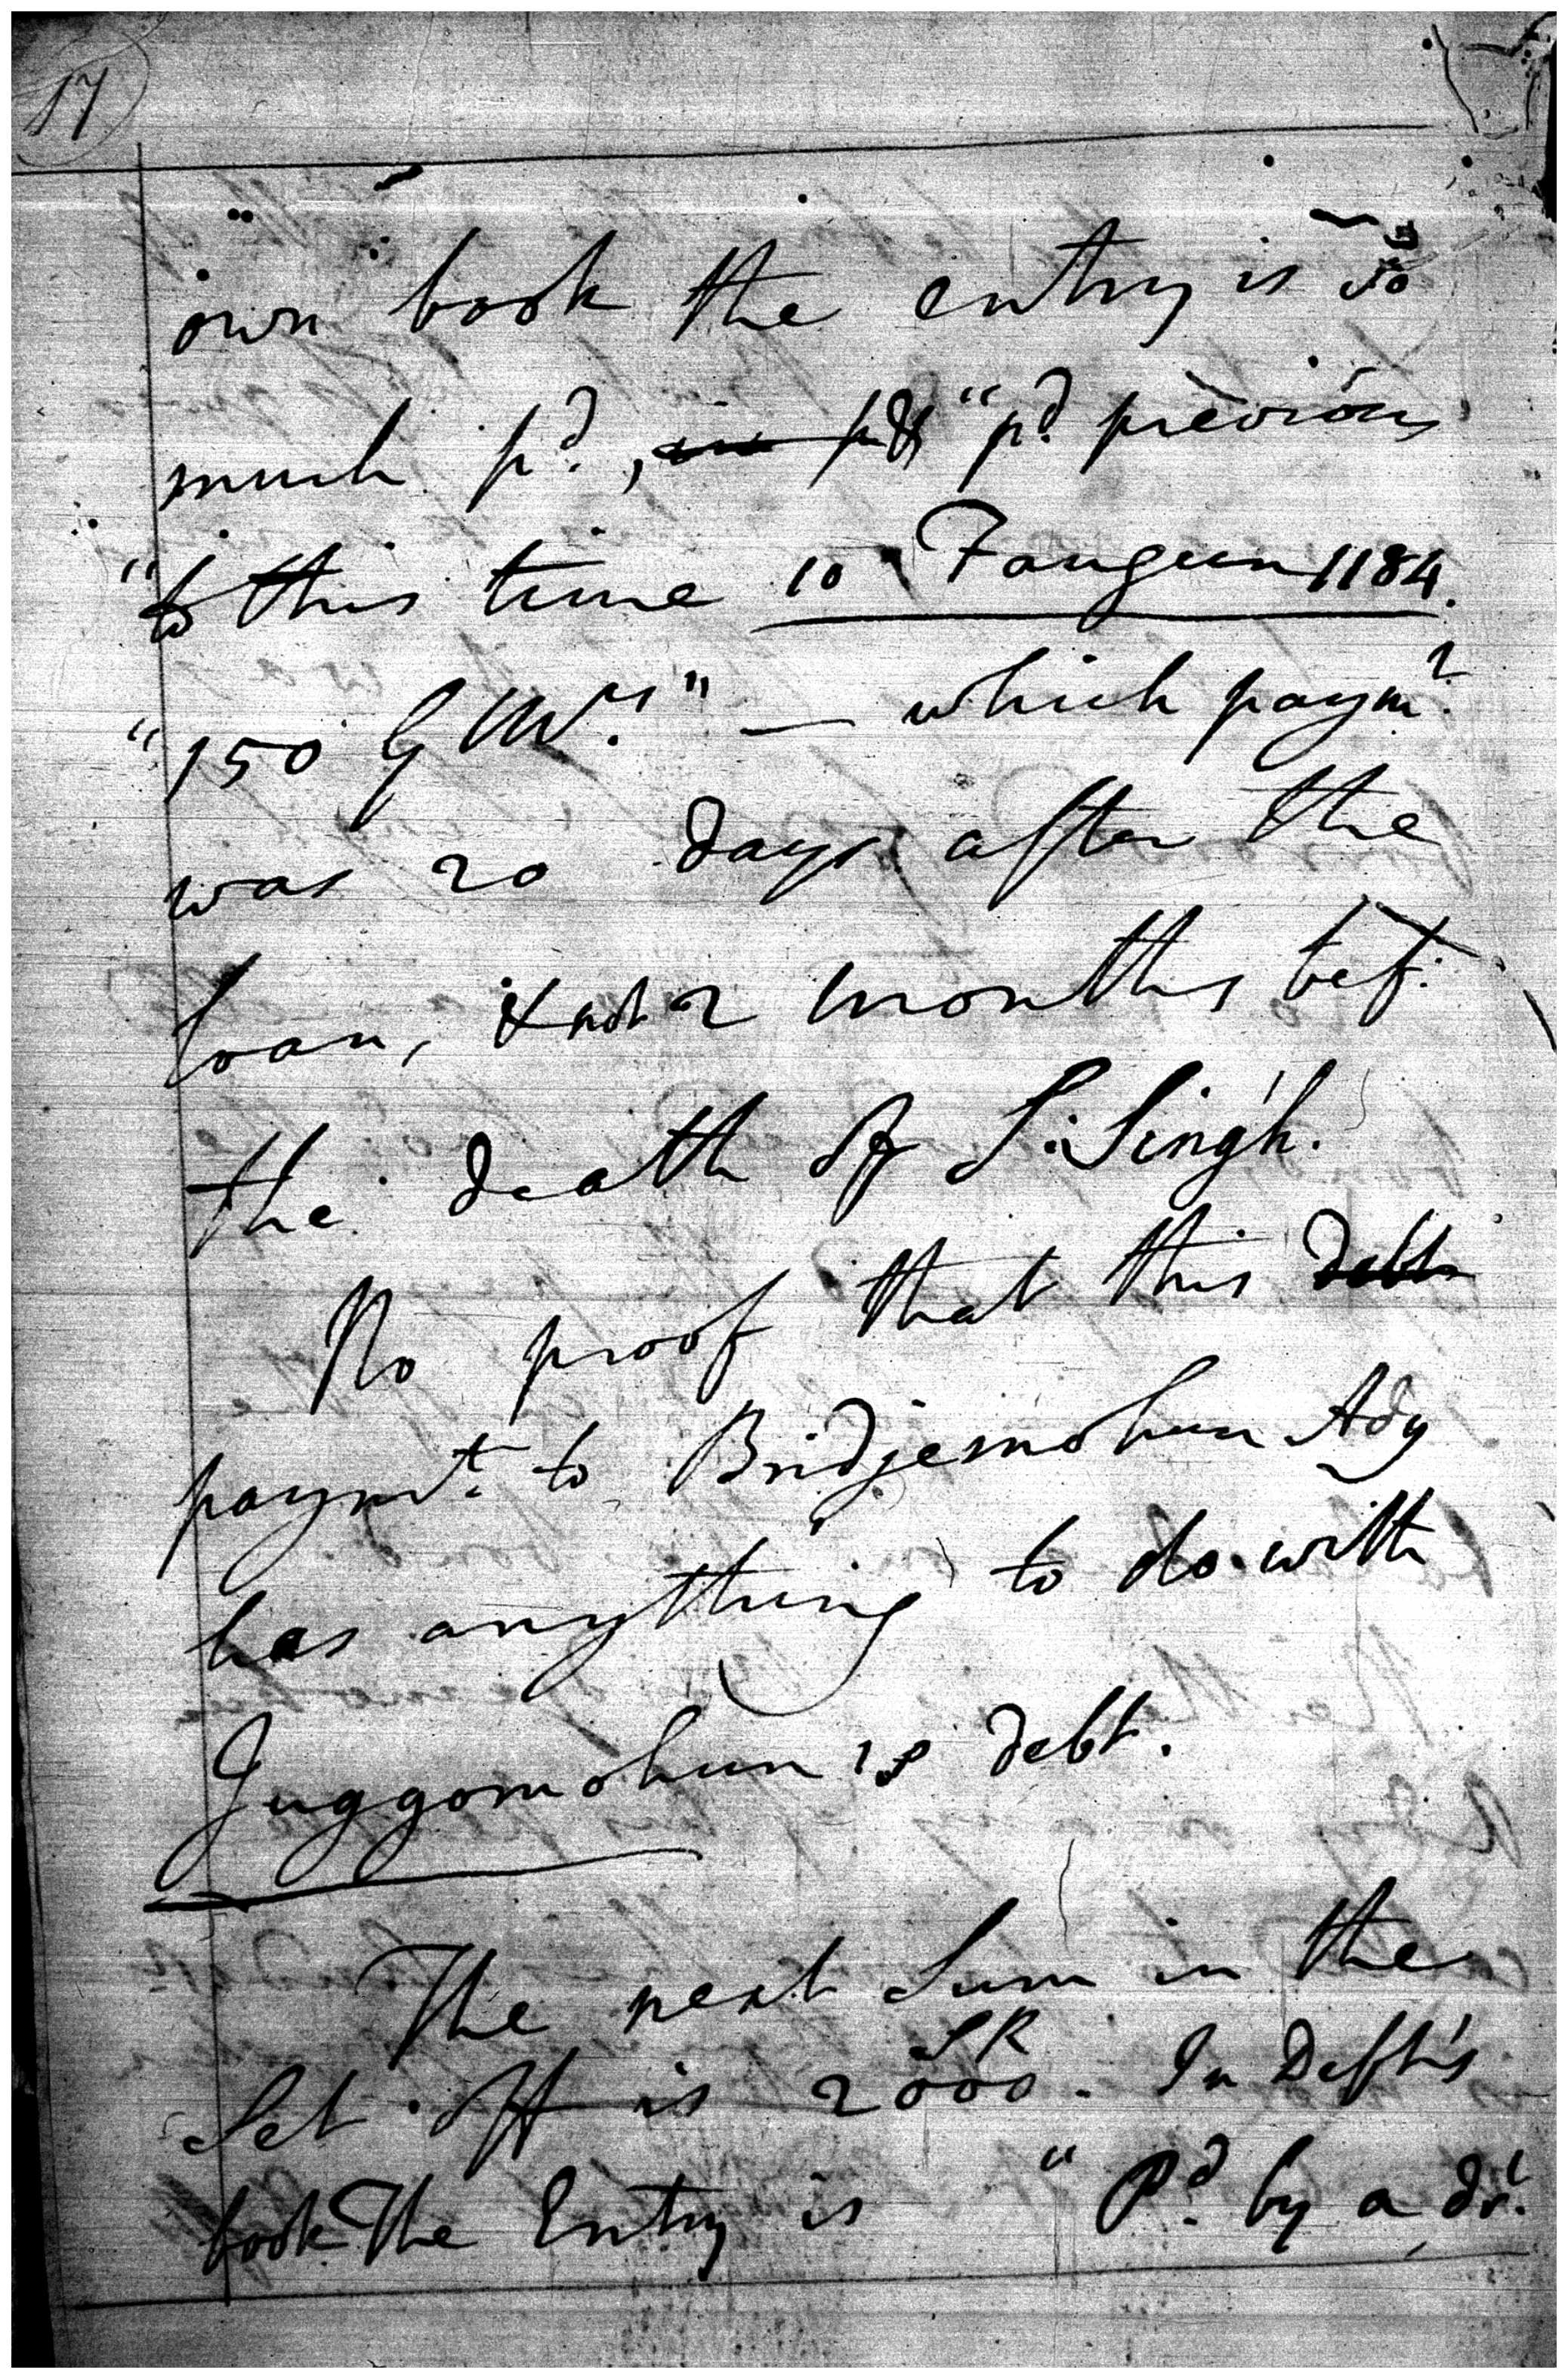 17
own book the entry is so
much pd., "pd. previous
"to this time 10 Faugun 1184.
"150 G Mrs." — which paymt.
was 20 days after the
loan, & not 2 months bef.
the death of S. Singh.
No proof that this debt
paymt. to Bridjemohun Ady
has anything to do with
Juggomohun's debt.
The next Sum in the
Set off is 2000 SR. In Deft's
book The Entry is " Pd. by a drt.